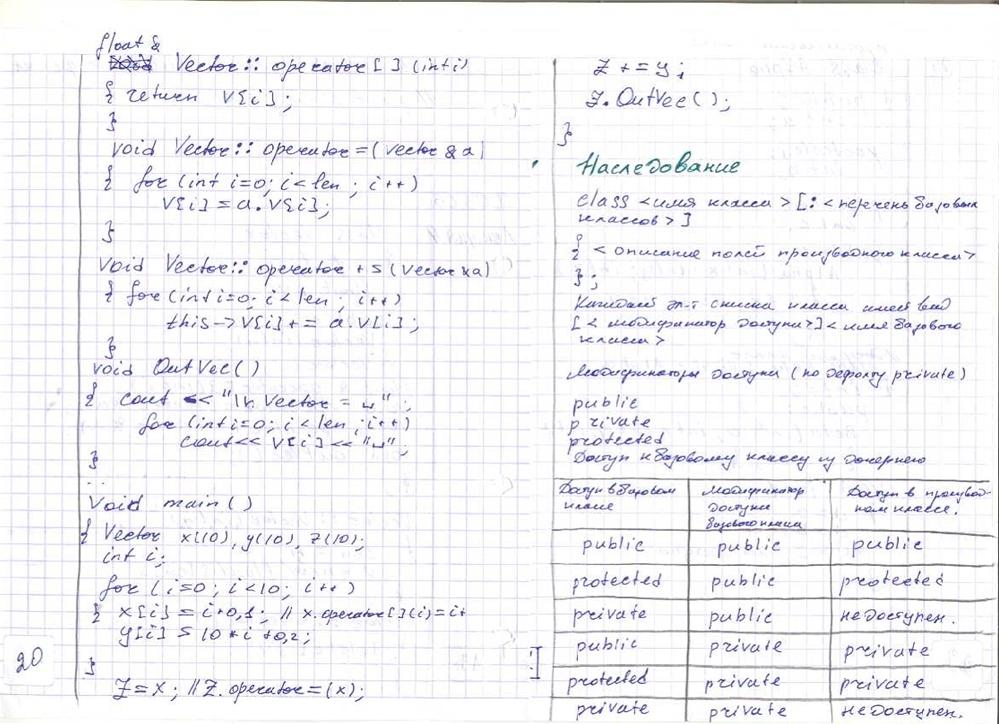 float &
Vector:: operator[](int i)
{ return V[i];
}
void Vector:: operator=(vector & a)
{ for (int i=0; i<len ; i++)
V[i] = a.V[i];
}
void Vector:: operator += (vector & a)
{ for (int i=0; i<len ; i++)
this->V[i] += a.V[i];
}
void OutVec()
{ cout << "\n Vector = ␣";
for (int i=0; i<len ; i++)
cout<< V[i] << "␣"
}
..
Void main()
{ Vector x(10), y(10), z(10);
int i;
for (i=0; i<10; i++)
{ x[i] = i+0,1; // x.operator[](i)=i+
y[i] = 10*i+0,2;
}
Z=x; // Z.operator=(x);
20
Z += y;
Z.OutVec();
}
Наследование
class <имя класса> [: <перечень базовых
классов>]
{ <описание полей производного класса>
};
Каждый эл-т списка класса имеет вид
[<модификатор доступа>] <имя базового
класса>
Модификаторы доступа (по дефолту private)
public
private
protected
Доступ к базовому классу из дочернего
Доступ в базовом классе | Модификатор доступа базового класса | Доступ в производном классе.
public | public | public
protected | public | protected
private | public | недоступен.
public | private | private
protected | private | private
private | private | недоступен.